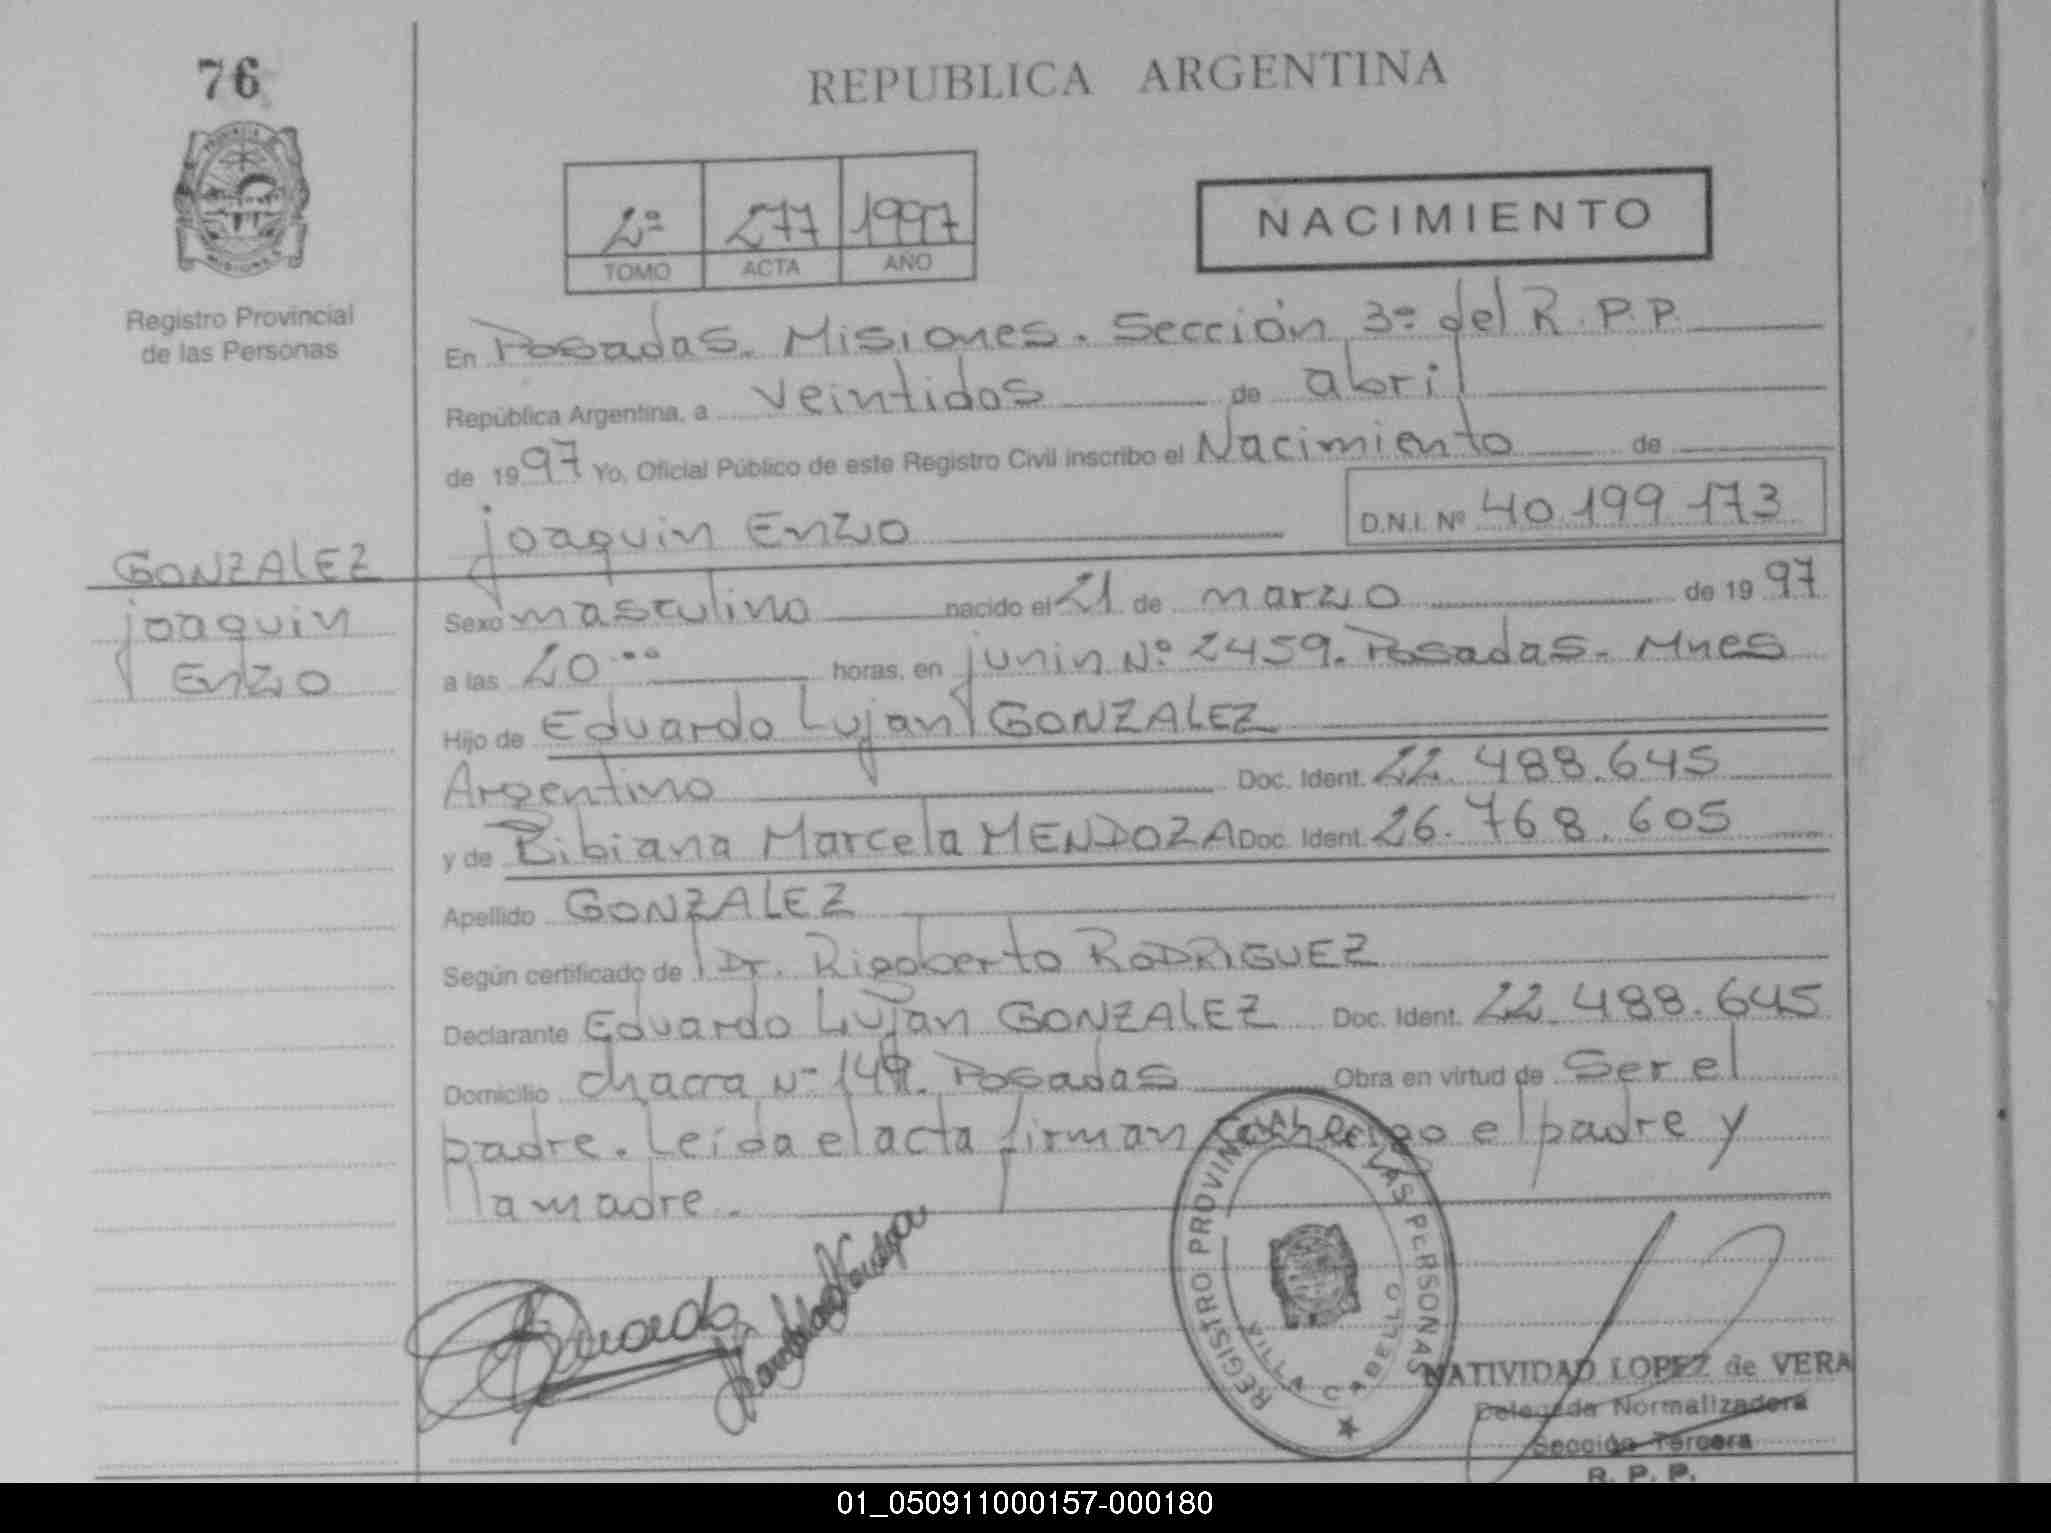 76
REPUBLICA ARGENTINA
PROVINCIA DE MISIONES
Registro Provincial
de las Personas
2º 277 1997
TOMO ACTA AÑO
NACIMIENTO
En Posadas. Misiones. Sección 3º del R.P.P.
República Argentina, a veintidos de abril
de 1997 Yo, Oficial Público de este Registro Civil inscribo el Nacimiento de
joaquin Enzo D.N.I. Nº 40.199.173
GONZALEZ
joaquin
Enzo
Sexo masculino nacido el 21 de marzo de 1997
a las 20.00 horas, en junin Nº 2459. Posadas. Mnes
Hijo de Eduardo Lujan GONZALEZ
Argentino Doc. Ident. 22.488.645
y de Bibiana Marcela MENDOZA Doc. Ident. 26.768.605
Apellido GONZALEZ
Según certificado de Dr. Rigoberto RODRIGUEZ
Declarante Eduardo Lujan GONZALEZ Doc. Ident. 22.488.645
Domicilio chacra Nº Posadas Obra en virtud de Ser el
padre. Leída el acta firman conmigo el padre y
la madre.
Eduardo
REGISTRO PROVINCIAL DE LAS PERSONAS
VILLA CABELLO
NATIVIDAD LOPEZ de VERA
Delegada Normalizadora
Sección Tercera
R. P. P.
01_050911000157-000180